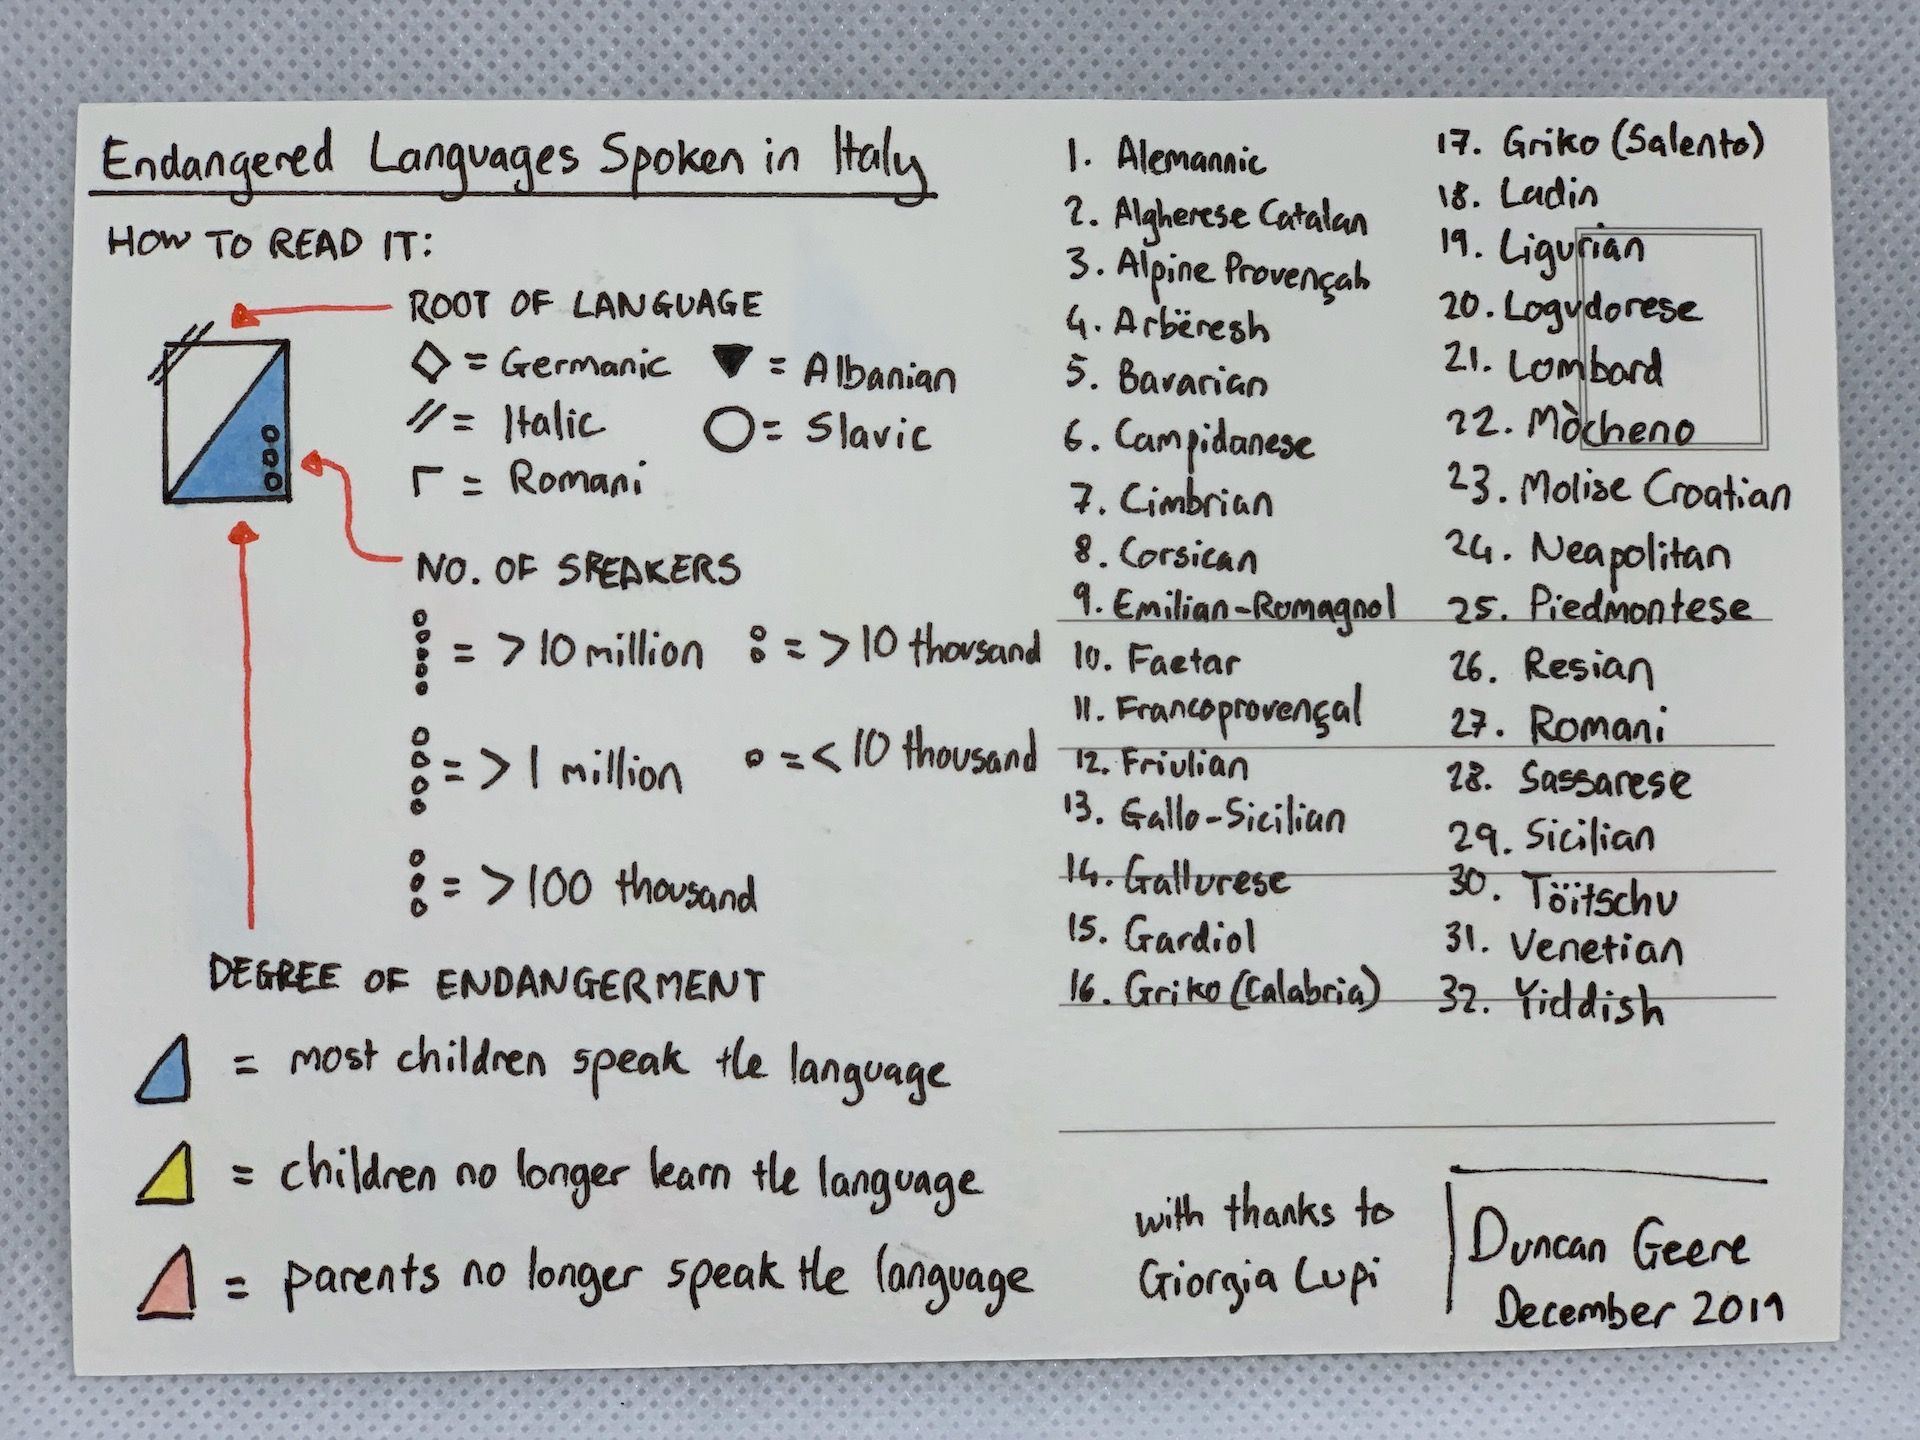 Endangered Languages Spoken in Italy
HOW TO READ IT:
ROOT OF LANGUAGE
◇ = Germanic ▼ = Albanian
// = Italic ○ = Slavic
┌ = Romani
NO. OF SPEAKERS
= >10 million = >10 thousand
= >1 million = <10 thousand
= >100 thousand
DEGREE OF ENDANGERMENT
= most children speak the language
= children no longer learn the language
= parents no longer speak the language
1. Alemannic
2. Algherese Catalan
3. Alpine Provençal
4. Arbëresh
5. Bavarian
6. Campidanese
7. Cimbrian
8. Corsican
9. Emilian-Romagnol
10. Faetar
11. Francoprovençal
12. Friulian
13. Gallo-Sicilian
14. Gallurese
15. Gardiol
16. Griko (Calabria)
17. Griko (Salento)
18. Ladin
19. Ligurian
20. Logudorese
21. Lombard
22. Mòcheno
23. Molise Croatian
24. Neapolitan
25. Piedmontese
26. Resian
27. Romani
28. Sassarese
29. Sicilian
30. Töitschu
31. Venetian
32. Yiddish
with thanks to
Giorgia Lupi
Duncan Geere
December 2019